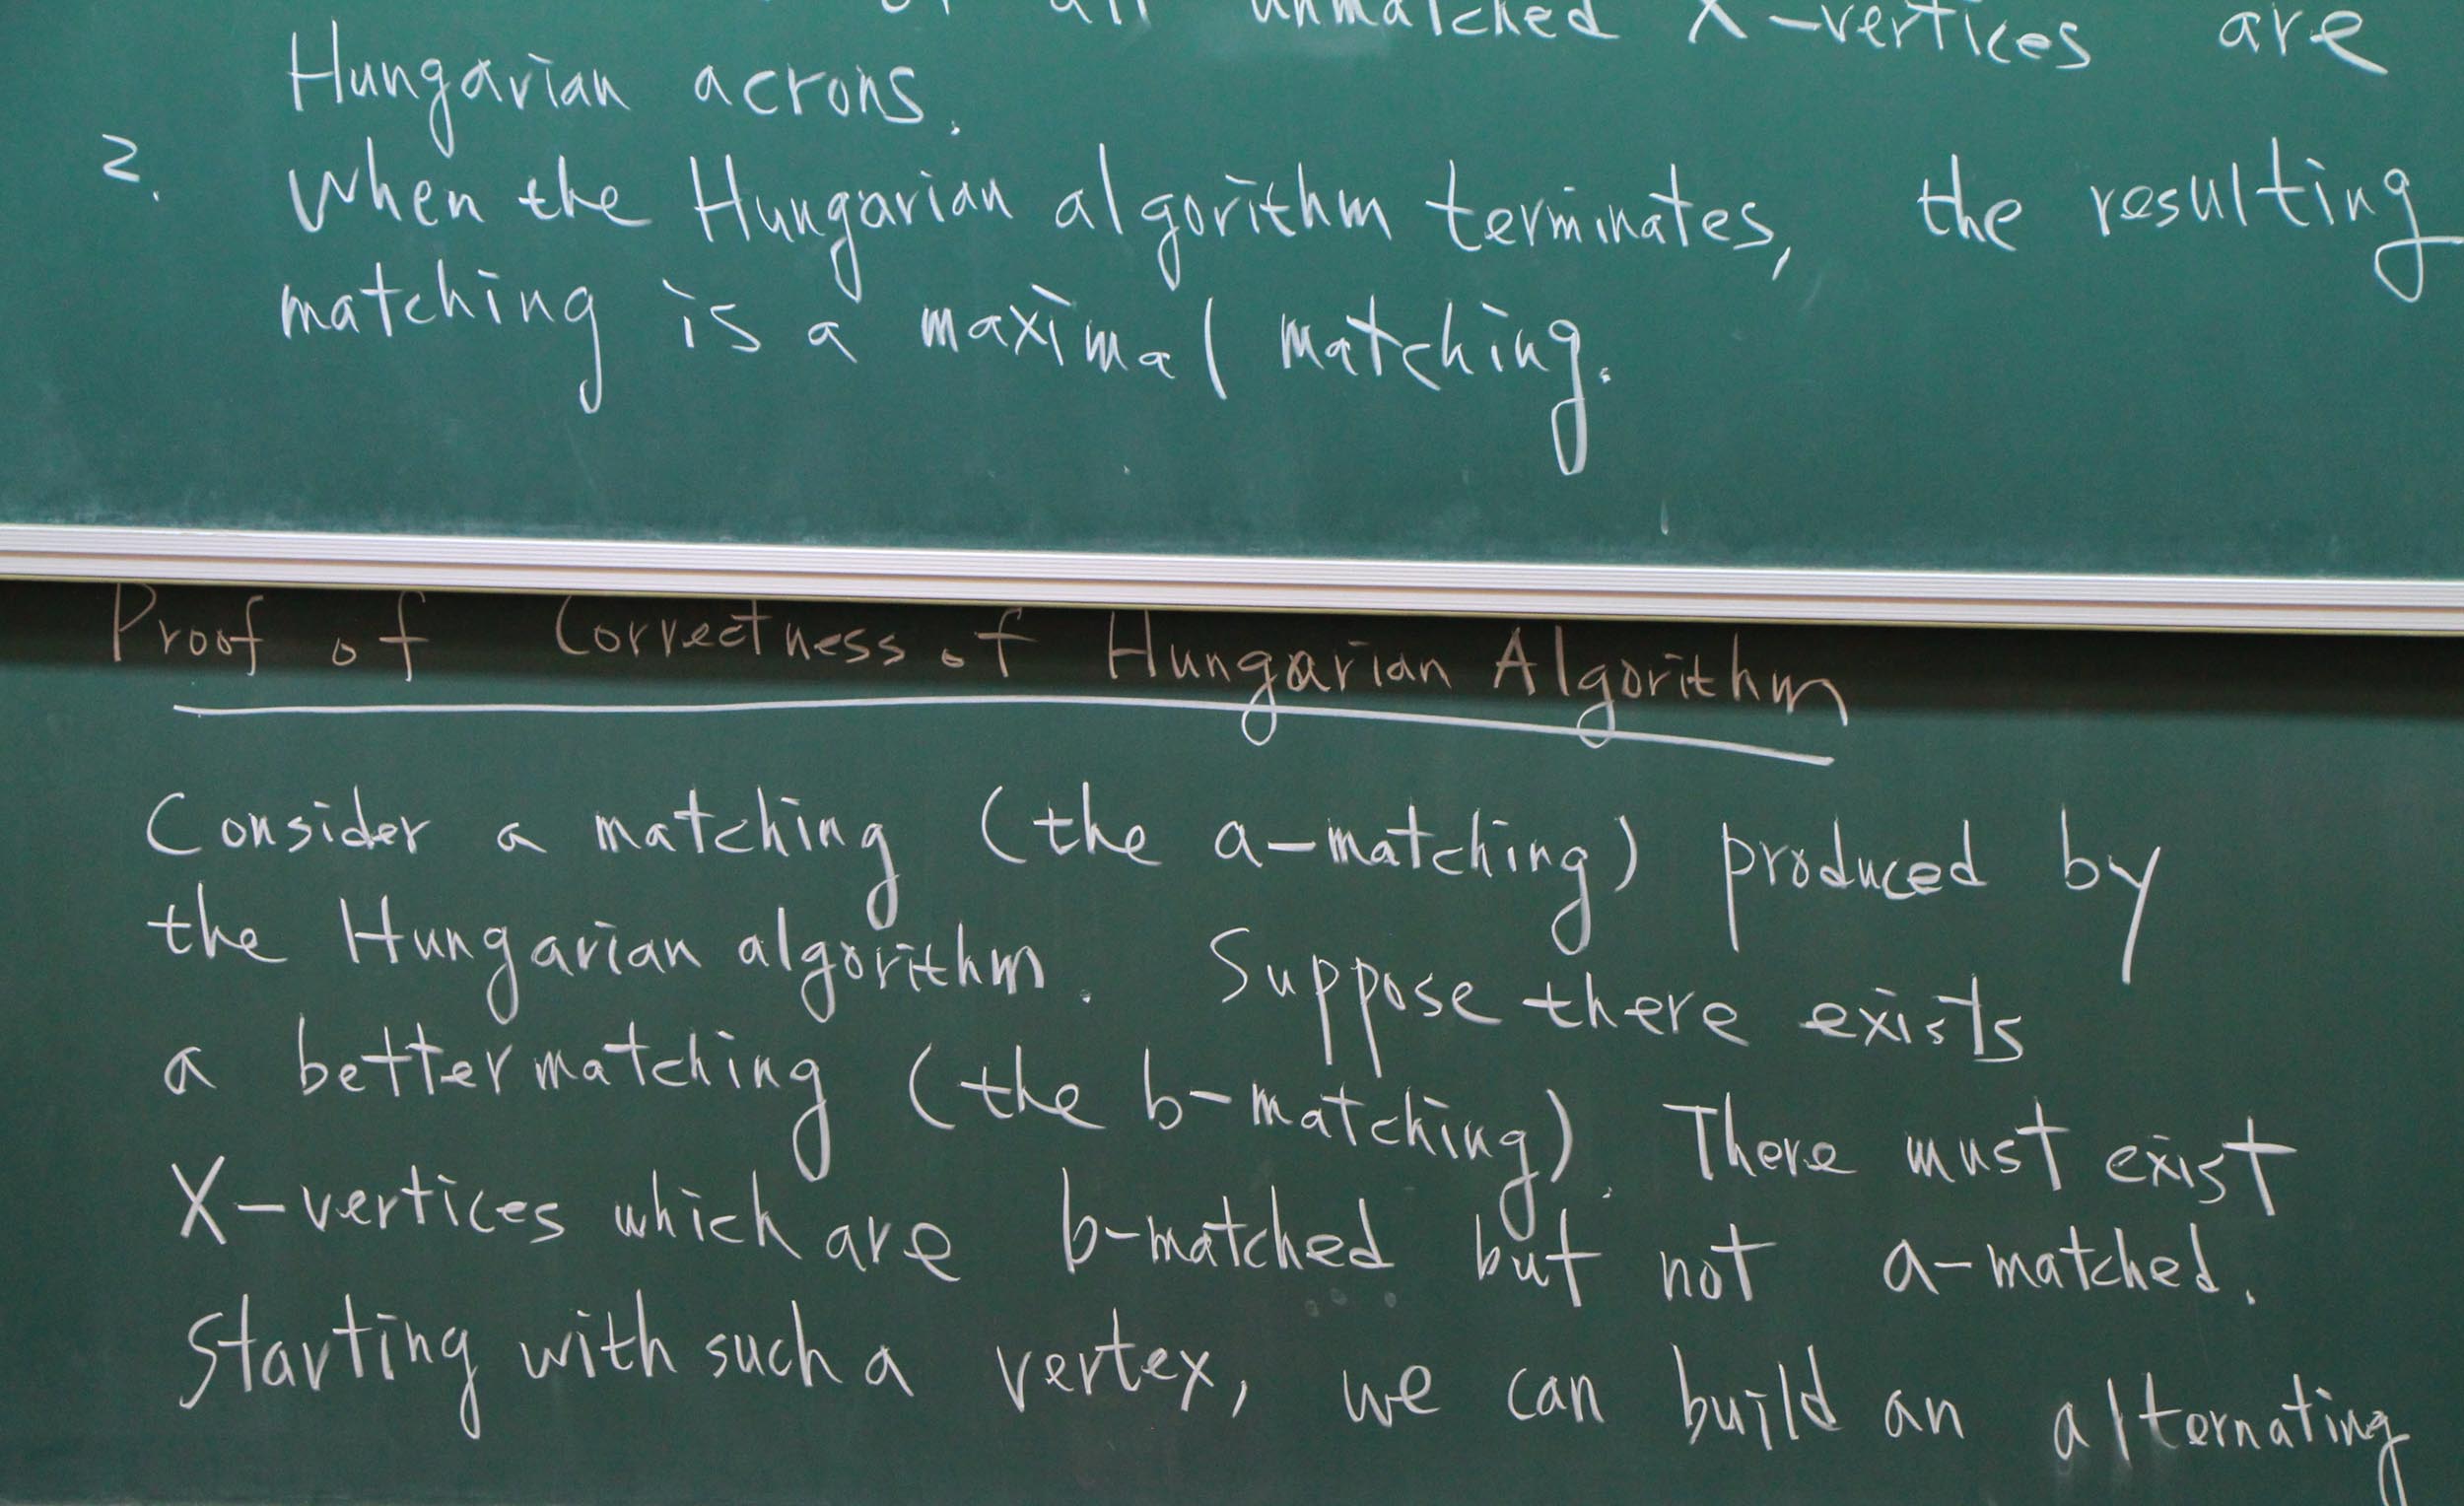 of all unmatched X-vertices are
Hungarian acrons.
2. When the Hungarian algorithm terminates, the resulting
matching is a maximal matching.
Proof of Correctness of Hungarian Algorithm
Consider a matching (the a-matching) produced by
the Hungarian algorithm. Suppose there exists
a better matching (the b-matching). There must exist
X-vertices which are b-matched but not a-matched.
Starting with such a vertex, we can build an alternating